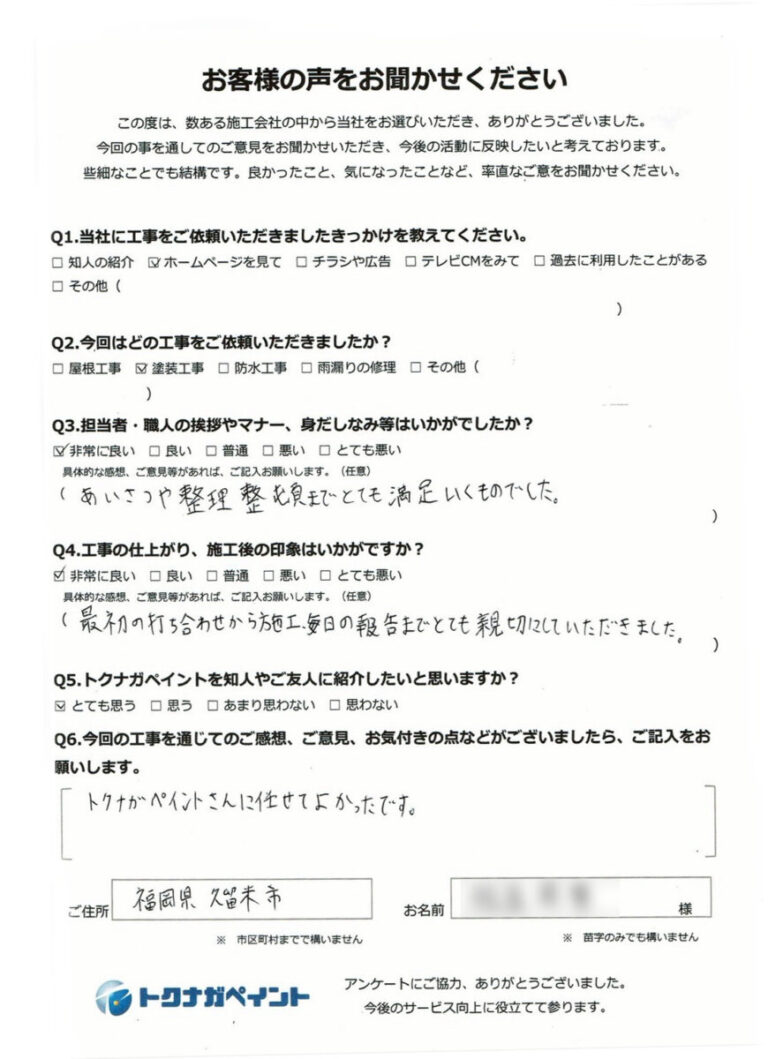 お客様の声をお聞かせください
この度は、数ある施工会社の中から当社をお選びいただき、ありがとうございました。
今回の事を通してのご意見をお聞かせいただき、今後の活動に反映したいと考えております。
些細なことでも結構です。良かったこと、気になったことなど、率直なご意をお聞かせください。
Q1.当社に工事をご依頼いただきましたきっかけを教えてください。
□ 知人の紹介 ☑ ホームページを見て □ チラシや広告 □ テレビCMをみて □ 過去に利用したことがある
□ その他（
）
Q2.今回はどの工事をご依頼いただきましたか？
□ 屋根工事 ☑ 塗装工事 □ 防水工事 □ 雨漏りの修理 □ その他（
）
Q3.担当者・職人の挨拶やマナー、身だしなみ等はいかがでしたか？
☑ 非常に良い □ 良い □ 普通 □ 悪い □ とても悪い
具体的な感想、ご意見等があれば、ご記入お願いします。（任意）
（あいさつや整理整頓までとても満足いくものでした。
）
Q4.工事の仕上がり、施工後の印象はいかがですか？
☑ 非常に良い □ 良い □ 普通 □ 悪い □ とても悪い
具体的な感想、ご意見等があれば、ご記入お願いします。（任意）
（最初の打ち合わせから施工、毎日の報告までとても親切にしていただきました。
）
Q5.トクナガペイントを知人やご友人に紹介したいと思いますか？
☑ とても思う □ 思う □ あまり思わない □ 思わない
Q6.今回の工事を通じてのご感想、ご意見、お気付きの点などがございましたら、ご記入をお
願いします。
トクナガペイントさんに任せてよかったです。
ご住所 福岡県 久留米市
お名前 様
※ 市区町村までで構いません
※ 苗字のみでも構いません
トクナガペイント
アンケートにご協力、ありがとうございました。
今後のサービス向上に役立てて参ります。